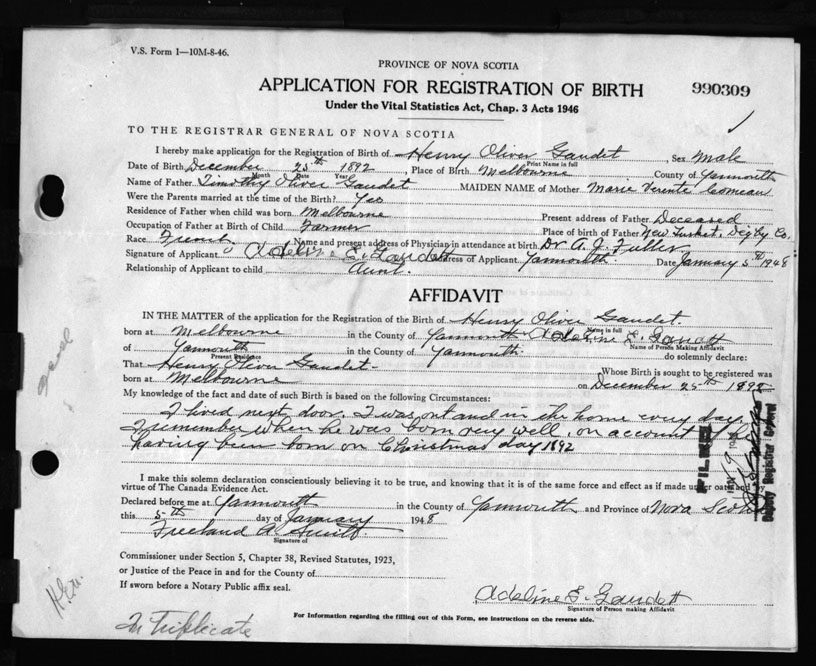 V.S. Form 1—10M-8-46.
PROVINCE OF NOVA SCOTIA
APPLICATION FOR REGISTRATION OF BIRTH
990309
Under the Vital Statistics Act, Chap. 3 Acts 1946
TO THE REGISTRAR GENERAL OF NOVA SCOTIA
I hereby make application for the Registration of Birth of Henry Oliver Gaudet, Sex Male
Print Name in full
Date of Birth December 25th 1892, Place of Birth Melbourne County of Yarmouth
Month Date Year
Name of Father Timothy Oliver Gaudet MAIDEN NAME of Mother Marie Comeau
Were the Parents married at the time of Birth? Yes
Residence of Father when child was born Melbourne Present address of Father Deceased
Occupation of Father at Birth of Child Farmer Place of birth of Father New Tusket, Digby Co.
Race French Name and present address of Physician in attendance at birth Dr. A. J. Fuller
Signature of Applicant Adeline E. Gaudett Address of Applicant Yarmouth Date January 5th 1948
Relationship of Applicant to child Aunt.
AFFIDAVIT
IN THE MATTER of the application for the Registration of the Birth of Henry Oliver Gaudet.
Name in full
born at Melbourne in the County of Yarmouth Adeline E. Gaudett
Name of Person Making Affidavit
of Yarmouth in the County of Yarmouth. do solemnly declare:
Present Residence
That Henry Oliver Gaudet Whose Birth is sought to be registered was
born at Melbourne on December 25th 1892
My knowledge of the fact and date of such Birth is based on the following Circumstances:
I lived next door. I was out and in the home every day.
I remember when he was born very well, on account of
having been born on Christmas day 1892
I make this solemn declaration conscientiously believing it to be true, and knowing that it is of the same force and effect as if made under oath and by
virtue of The Canada Evidence Act.
Declared before me at Yarmouth in the County of Yarmouth and Province of Nova Scotia
this 5th day of January 1948
Freeland A.
Signature of
Commissioner under Section 5, Chapter 38, Revised Statutes, 1923,
or Justice of the Peace in and for the County of
If sworn before a Notary Public affix seal.
Adeline E. Gaudett
Signature of Person making Affidavit
For Information regarding the filling out of this Form, see instructions on the reverse side.
In Triplicate
FILED
Deputy Registrar General